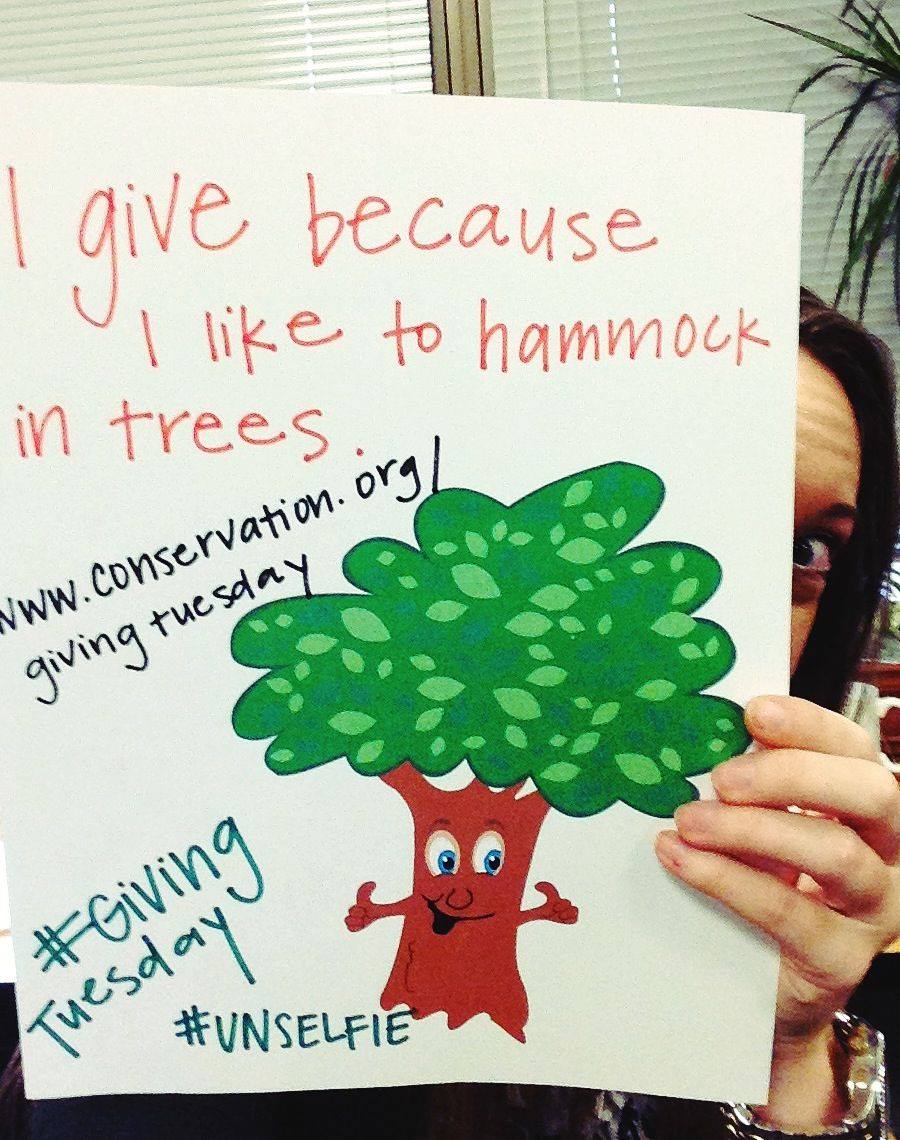 I give because
I like to hammock
in trees.
www.conservation.org/
givingtuesday
#Giving
Tuesday
#UNSELFIE